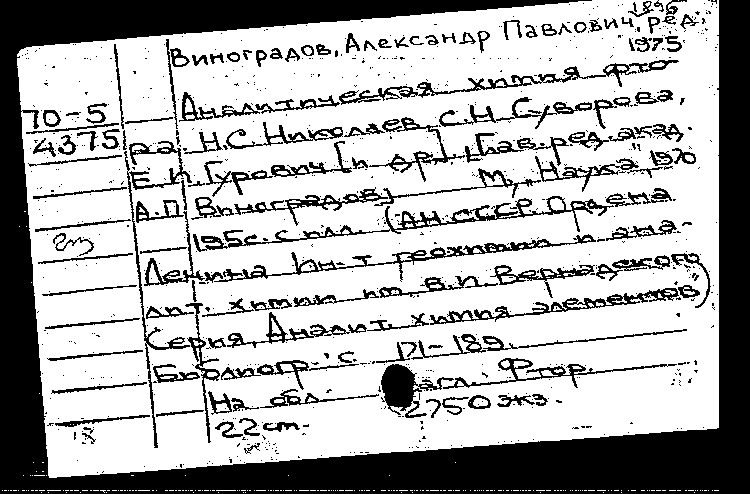 Виноградов, Александр Павлович, ред.
1895
1975
70-5
4375
Аналитическая химия фто-
ра. Н.С. Николаев, С.Н. Суворова,
Е.И. Гурович [и др.]. [Глав. ред. акад.
А.П. Виноградов]
М., "Наука", 1970
195с. с илл. (АН СССР. Ордена
Ленина Ин-т геохимии и ана-
лит. химии им. В.И. Вернадского
Серия "Аналит. химия элементов")
Библиогр.: с. 171-189.
На обл. загл.: Фтор.
2750 экз.
22cm.